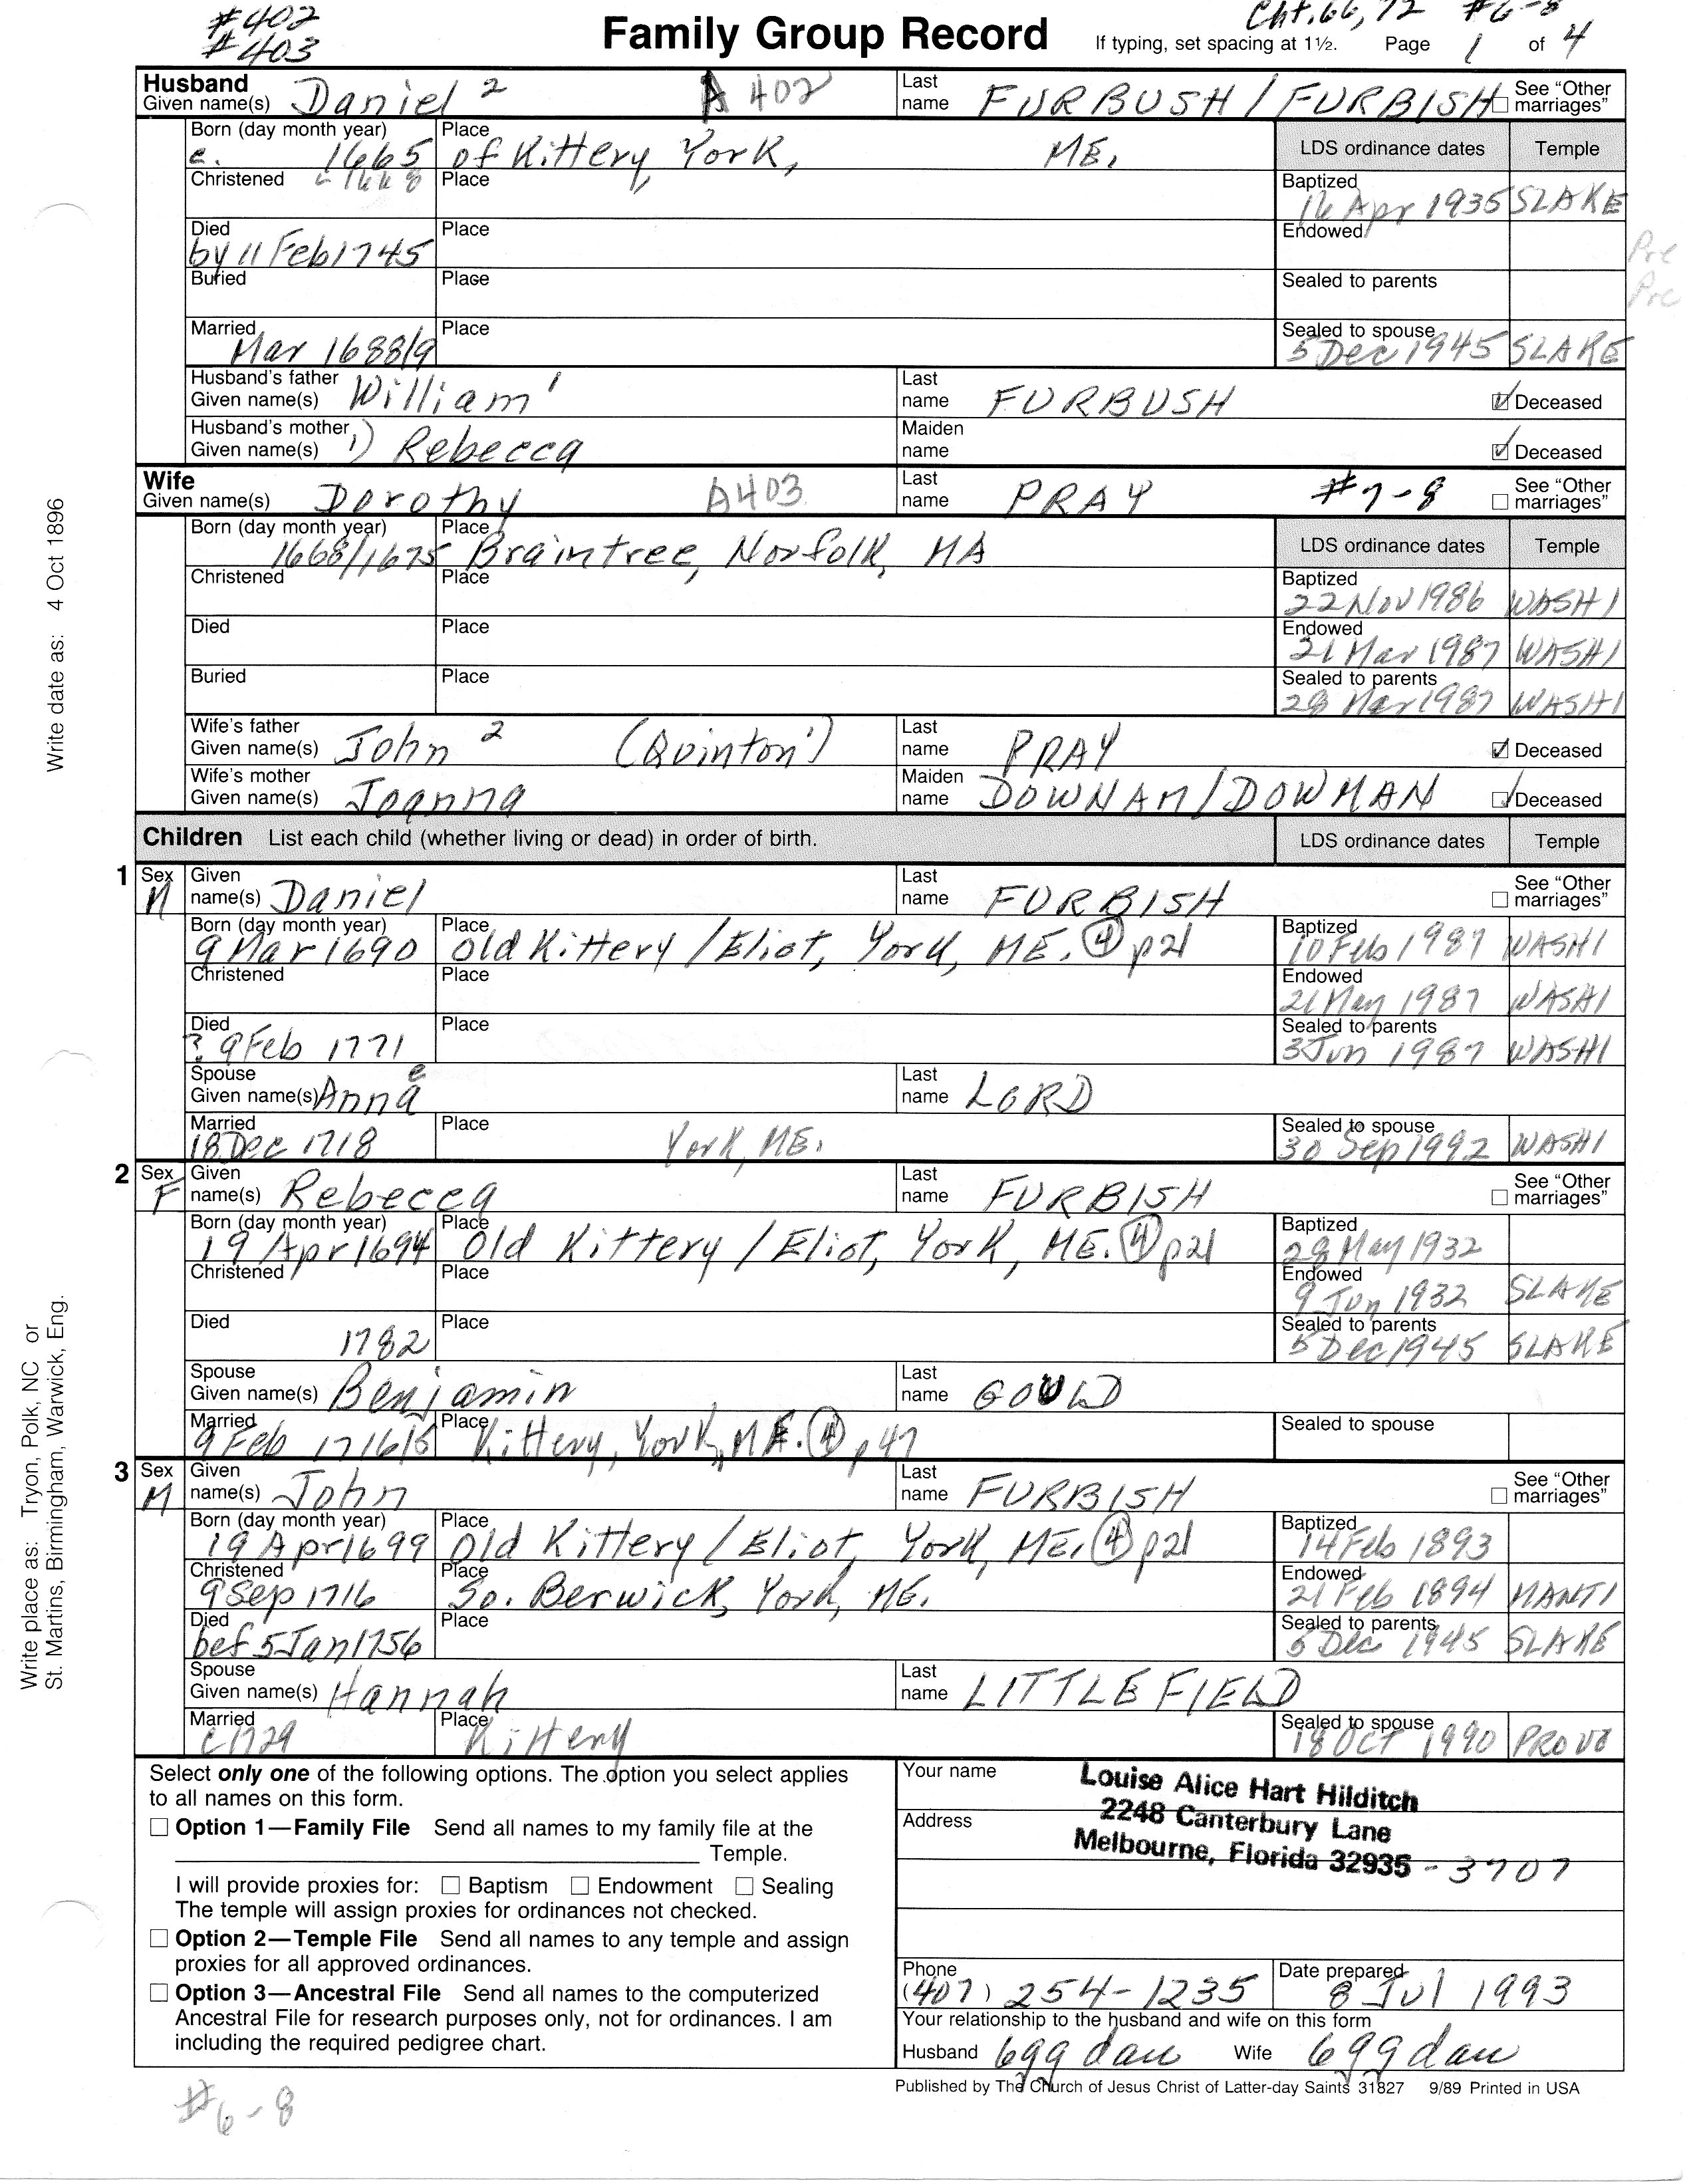 #402
#403
Family Group Record
Cht. 66, 72 #6-8
If typing, set spacing at 1½. Page 1 of 4
Husband
Given name(s) Daniel 2 A 402 Last name FURBUSH / FURBISH See "Other marriages"
Born (day month year) c. 1665 Place of Kittery, York, ME. LDS ordinance dates Temple
Christened c 1668 Place Baptized 16 Apr 1935 SLAKE
Died by 11 Feb 1745 Place Endowed
Pre
Buried Place Sealed to parents
Pre
Married Mar 1688/9 Place Sealed to spouse 5 Dec 1945 SLAKE
Husband's father Given name(s) William 1 Last name FURBUSH Deceased
Husband's mother Given name(s) 1) Rebecca Maiden name Deceased
Wife
Given name(s) Dorothy A403 Last name PRAY #7-8 See "Other marriages"
Born (day month year) 1668/1675 Place Braintree, Norfolk, MA LDS ordinance dates Temple
Christened Place Baptized 22 Nov 1986 WASHI
Died Place Endowed 21 Mar 1987 WASHI
Buried Place Sealed to parents 28 Mar 1987 WASHI
Wife's father Given name(s) John 2 (Quinton 1) Last name PRAY Deceased
Wife's mother Given name(s) Joanna Maiden name DOWNAM/DOWMAN Deceased
Children List each child (whether living or dead) in order of birth. LDS ordinance dates Temple
1 Sex M Given name(s) Daniel Last name FURBISH See "Other marriages"
Born (day month year) 9 Mar 1690 Place Old Kittery / Eliot, York, ME. 4 p21 Baptized 10 Feb 1987 WASHI
Christened Place Endowed 21 May 1987 WASHI
Died ? 9 Feb 1771 Place Sealed to parents 3 Jun 1987 WASHI
Spouse Given name(s) Anna e Last name LORD
Married 18 Dec 1718 Place York, ME. Sealed to spouse 30 Sep 1992 WASHI
2 Sex F Given name(s) Rebecca Last name FURBISH See "Other marriages"
Born (day month year) 19 Apr 1694 Place Old Kittery / Eliot, York, ME. 4 p21 Baptized 28 May 1932
Christened Place Endowed 9 Jun 1932 SLAKE
Died 1782 Place Sealed to parents 5 Dec 1945 SLAKE
Spouse Given name(s) Benjamin Last name GOULD
Married 9 Feb 1716/5 Place Kittery, York, ME. 4 p 47 Sealed to spouse
3 Sex M Given name(s) John Last name FURBISH See "Other marriages"
Born (day month year) 19 Apr 1699 Place Old Kittery / Eliot, York, ME. 4 p21 Baptized 14 Feb 1893
Christened 9 Sep 1716 Place So. Berwick, York, ME. Endowed 21 Feb 1894 MANTI
Died bef 5 Jan 1756 Place Sealed to parents 5 Dec 1945 SLAKE
Spouse Given name(s) Hannah Last name LITTLEFIELD
Married c 1729 Place Kittery Sealed to spouse 18 Oct 1990 PROVO
Select only one of the following options. The option you select applies
to all names on this form.
Option 1—Family File Send all names to my family file at the
Temple.
I will provide proxies for: Baptism Endowment Sealing
The temple will assign proxies for ordinances not checked.
Option 2—Temple File Send all names to any temple and assign
proxies for all approved ordinances.
Option 3—Ancestral File Send all names to the computerized
Ancestral File for research purposes only, not for ordinances. I am
including the required pedigree chart.
Your name Louise Alice Hart Hilditch
Address 2248 Canterbury Lane
Melbourne, Florida 32935 - 3707
Phone (407) 254-1235 Date prepared 8 Jul 1993
Your relationship to the husband and wife on this form
Husband 6gg dau Wife 6gg dau
Published by The Church of Jesus Christ of Latter-day Saints 31827 9/89 Printed in USA
#6-8
Write date as: 4 Oct 1896
Write place as: Tryon, Polk, NC or
St. Martins, Birmingham, Warwick, Eng.